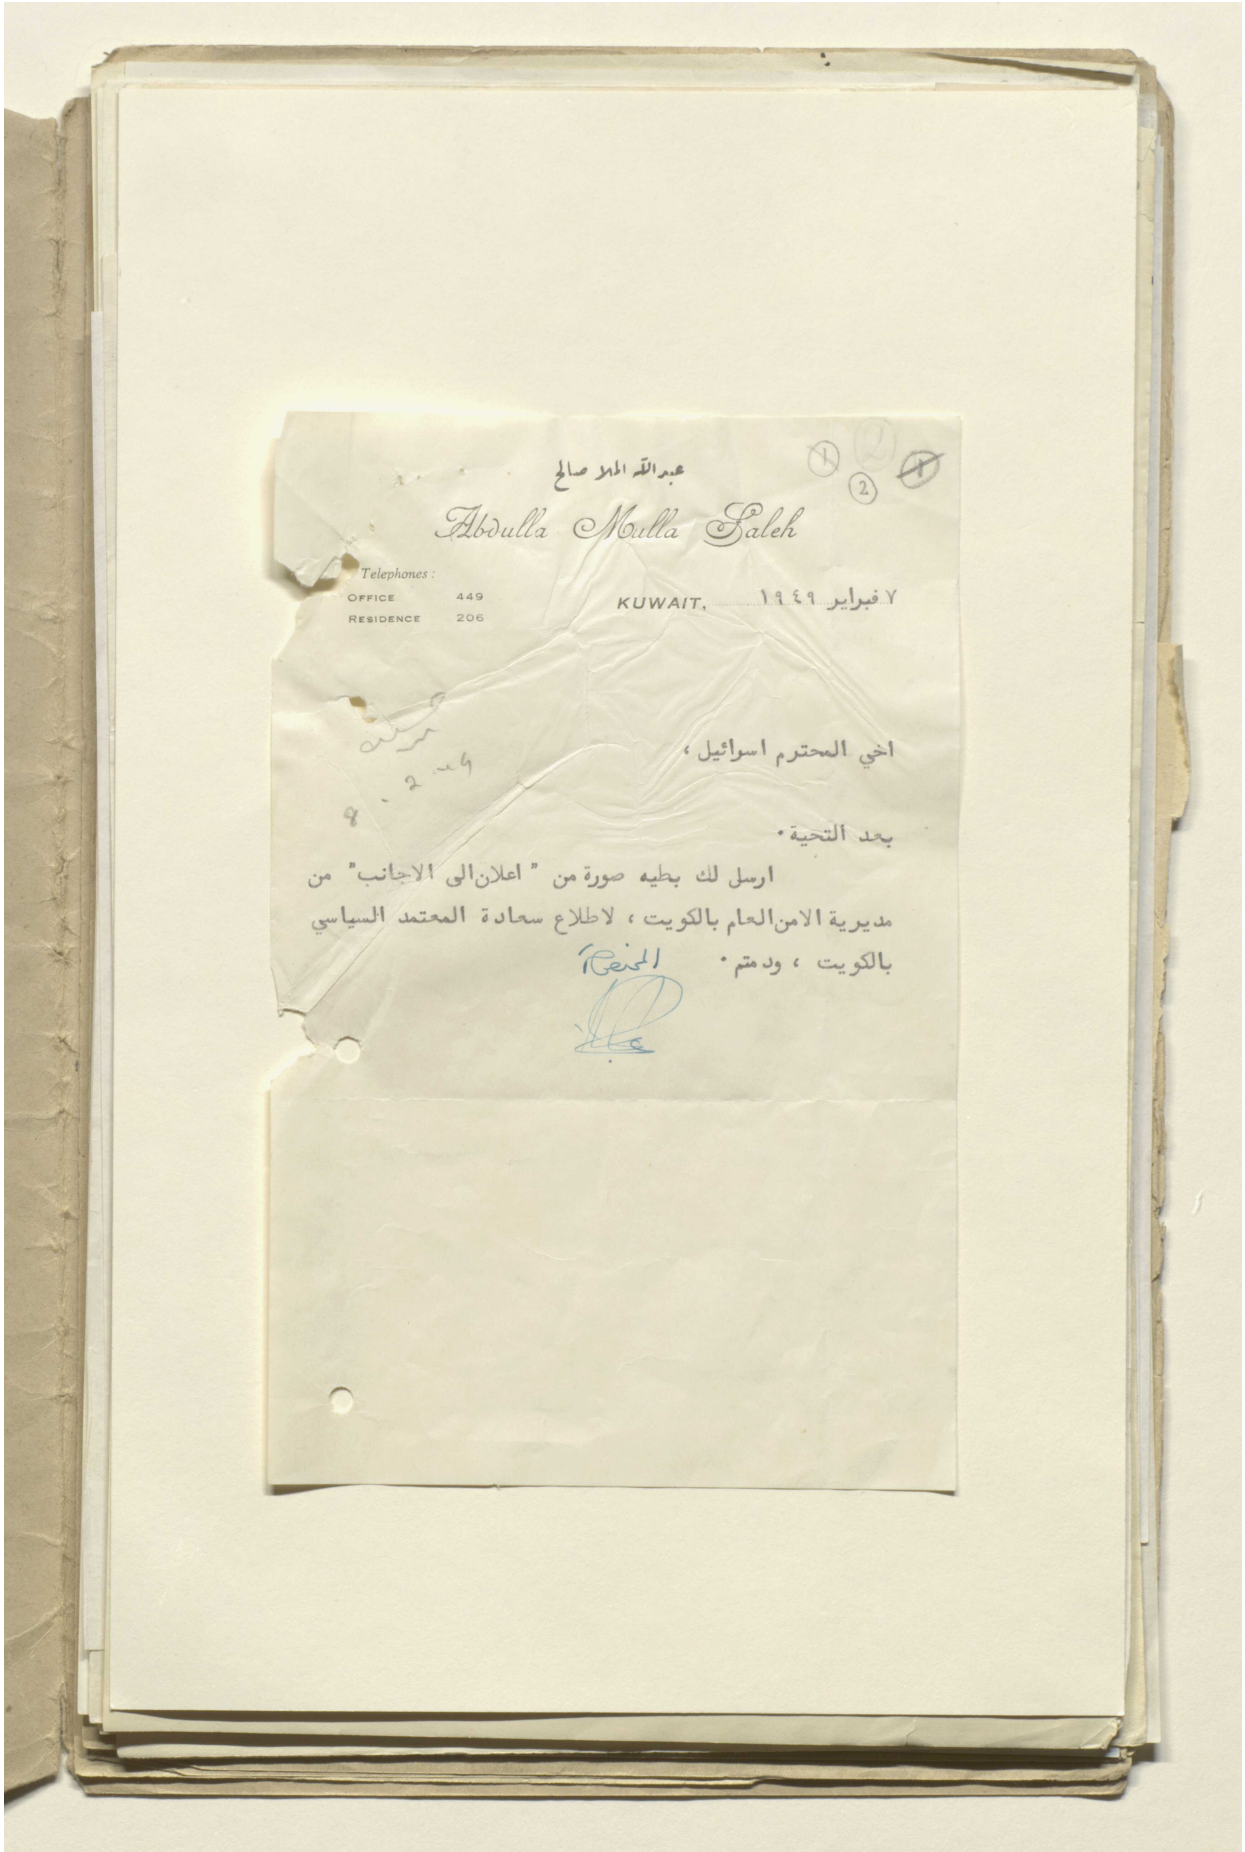 1 2 2 1
عبدالله الملا صالح
Abdulla Mulla Saleh
Telephones :
OFFICE 449
RESIDENCE 206
KUWAIT, ٧ فبراير ١٩٤٩
اخي المحترم اسرائيل ،
8 . 2 - 49
بعد التحية ٠
ارسل لك بطيه صورة من " اعلان الى الاجانب " من
مديرية الامن العام بالكويت ، لاطلاع سعادة المعتمد السياسي
بالكويت ، ودمتم ٠
المخلص